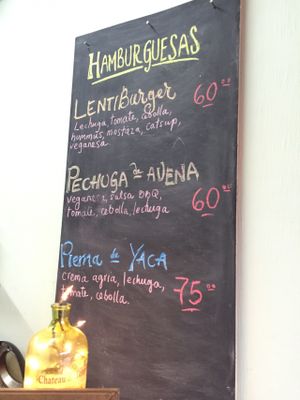 HAMBURGUESAS
LENTIBurger 60.00
Lechuga, tomate, cebolla,
hummus, mostaza, catsup,
veganesa.
PECHUGA de AVENA
veganesa, salsa BBQ, 60.00
tomate, cebolla, lechuga
Pierna de YACA
crema agria, lechuga, 75.00
tomate, cebolla.
Chateau